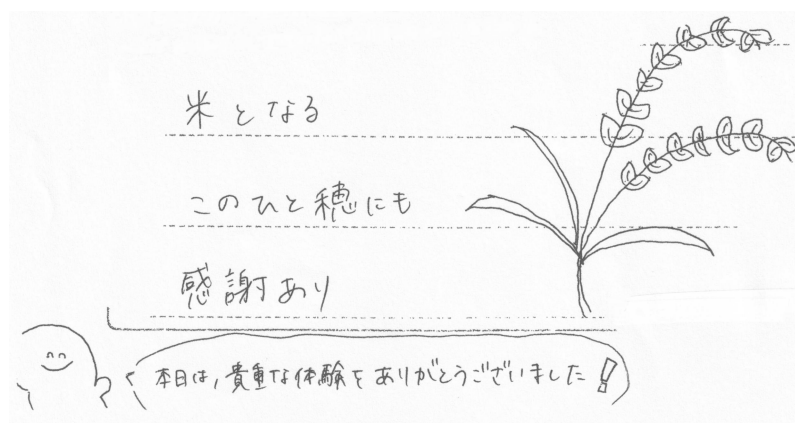 米となる
このひと穂にも
感謝あり
本日は,貴重な体験をありがとうございました!